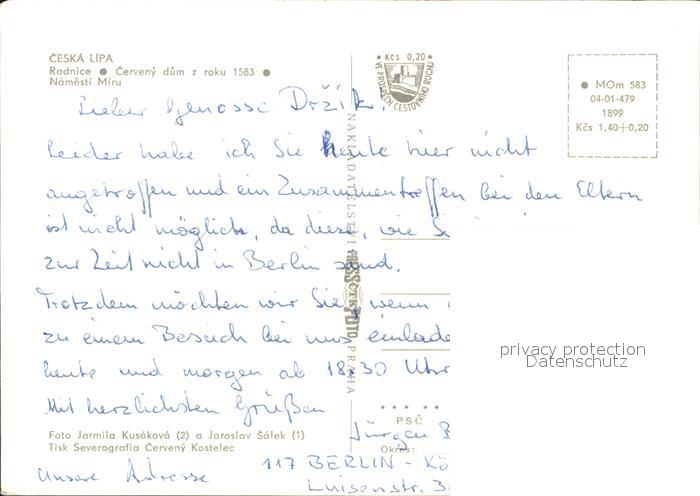 ČESKÁ LÍPA
Radnice ● Červený dům z roku 1583 ●
Náměstí Míru
* Kčs 0,20 *
VE PROSPĚCH CESTOVNÍHO RUCHU
● MOm 583
04-01-479
1899
Kčs 1,40+0,20
Lieber Genosse Držík,
Leider habe ich Sie heute hier nicht
angetroffen und ein Zusammentreffen bei den Eltern
ist nicht möglich, da diese, wie
zur Zeit nicht in Berlin sind.
Trotzdem möchten wir Sie, wenn
zu einem Besuch bei uns einlade
heute und morgen ab 18.30 Uhr
Mit herzlichsten Grüßen
Jürgen
NAKLADATELSTVÍ PRESSFOTO PRAHA
ČTK
privacy protection
Datenschutz
PSČ
Okres:
Foto Jarmila Kusáková (2) a Jaroslav Šálek (1)
Tisk Severografia Červený Kostelec
Unsere Adresse
117 BERLIN - KÖ
Luisenstr.